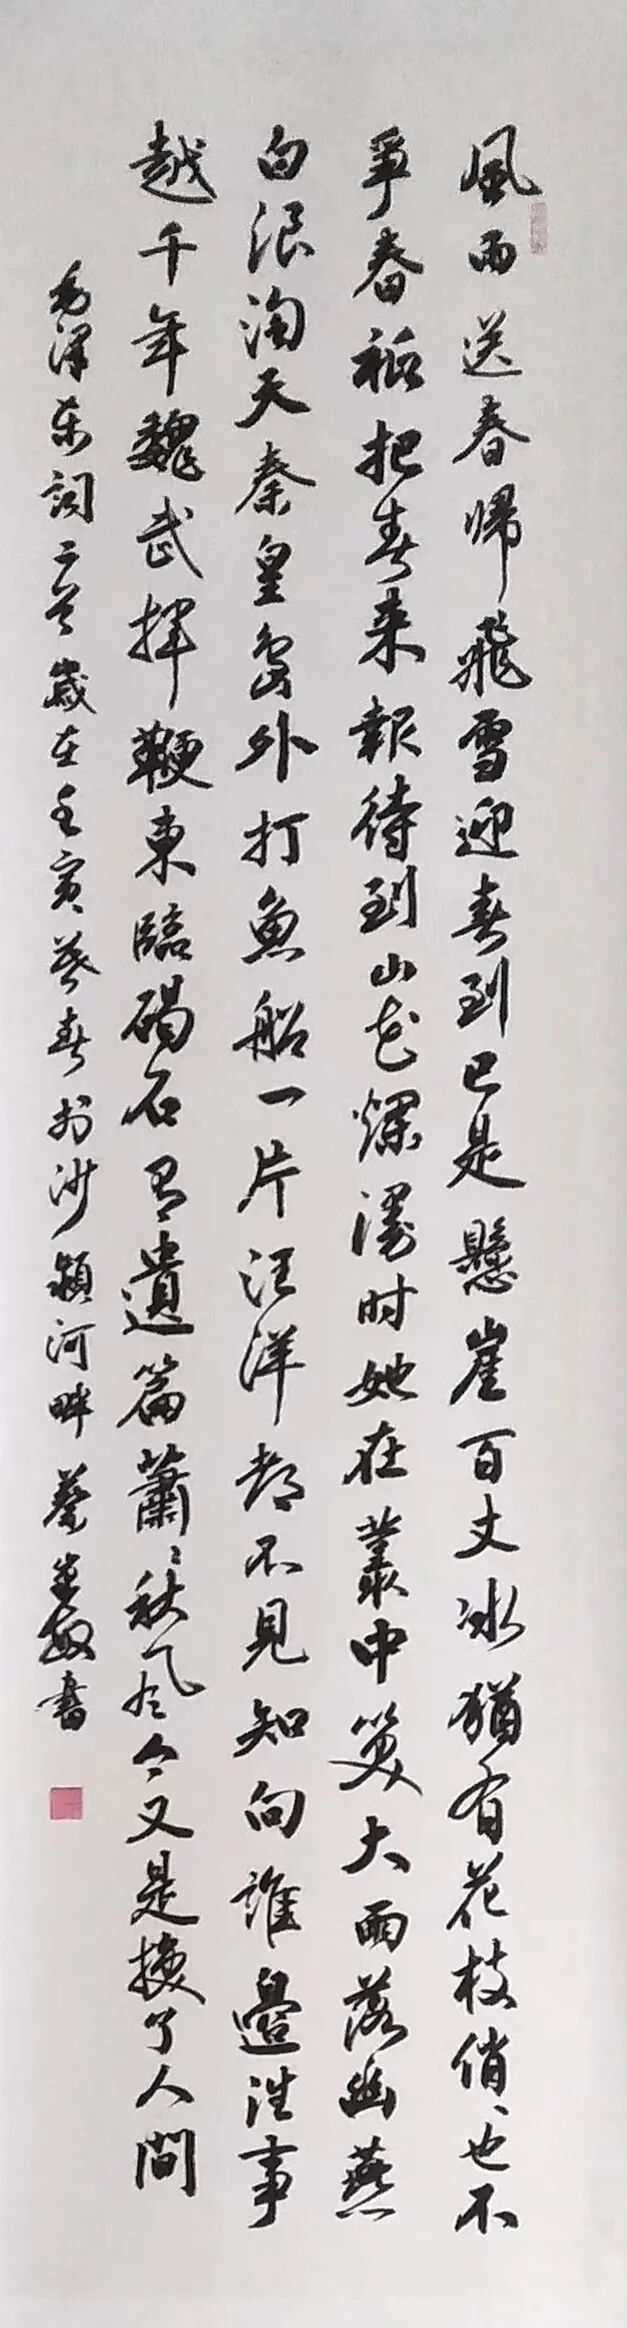 風雨送春帰飛雪迎春到已是懸崖百丈冰猶有花枝俏、也不
爭春祗把春来報待到山花爛漫时她在叢中笑大雨落幽燕
白浪淘天秦皇島外打魚船一片汪洋都不見知向誰邊往事
越千年魏武揮鞭東臨碣石有遺篇蕭、秋风今又是換了人間
毛澤东詞二首歲在壬寅暮春於沙颍河畔蔡敏書